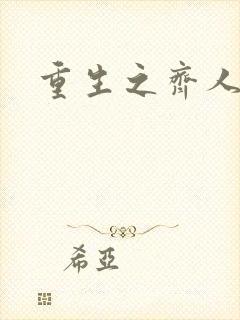 重生之齊人
希亞